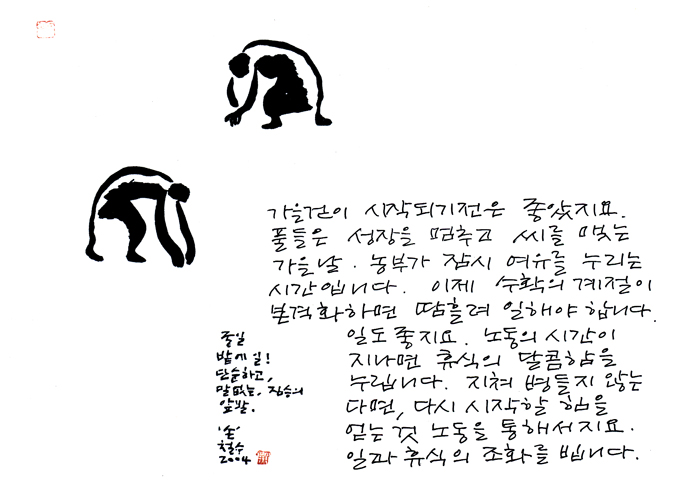 가을걷이 시작되기전은 좋았지요.
풀들은 성장을 멈추고 씨를 맺는
가을날. 농부가 잠시 여유를 누리는
시간입니다. 이제 수확의 계절이
본격화하면 땀흘려 일해야 합니다.
일도 좋지요. 노동의 시간이
지나면 휴식의 달콤함을
누립니다. 지쳐 병들지 않는
다면, 다시 시작할 힘을
얻는 것 노동을 통해서지요.
일과 휴식의 조화를 빕니다.
종일
밭에 일!
단순하고,
말없는, 짐승의
앞발.
'손'
철수
2004